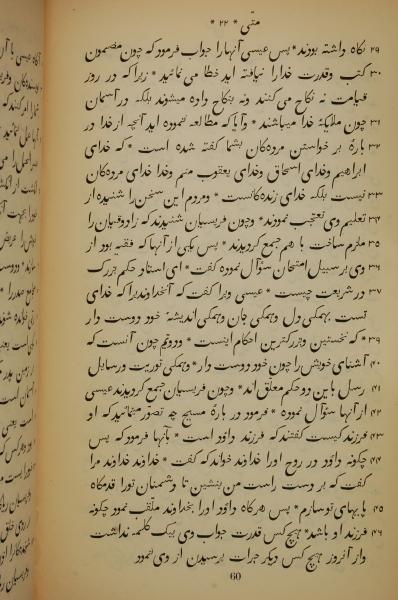 متی * ۲۲ *
۲۹ نکاه داشته بودند * پس عیسی آنها را جواب فرمود که چون مضمون
۳۰ کتب و قدرت خدا را نیافته اید خطا می نمائید * زیرا که در روز
قیامت نه نکاح می کنند و نه بنکاح داده میشوند بلکه در آسمان
۳۱ چون ملایکهٔ خدا میباشند * و آیا که مطالعه ننموده اید آنچه از خدا در
۳۲ بارهٔ بر خواستن مردەکان بشما کفته شده است * که خدای
ابراهیم و خدای اسحاق و خدای یعقوب منم و خدا خدای مردەکان
۳۳ نیست بلکه خدای زندەکانست * و مردم این سخن را شنیده از
۳۴ تعلیم وی تعجب نمودند * و چون فریسیان شنیدند که زادوقیان را
۳۵ ملزم ساخت با هم جمع کردیدند * پس یکی از آنها که فقیه بود از
۳۶ وی بر سبیل امتحان سؤال نموده کفت * ای استاد حکم بزرک
۳۷ در شریعت چیست * عیسی ویرا کفت که آنخداوندیرا که خدای
تست بهمکی دل و همکی جان و همکی اندیشهٔ خود دوست دار
۳۹ * که نخستین و بزرکترین احکام اینست * و دویم چون آنست که
۴۰ آشنای خویش را چون خود دوست دار * و همکی توریت و رسایل
۴۱ رسل باین دو حکم معلق اند * و چون فریسیان جمع کردیدند عیسی
۴۲ از آنها سؤال نموده * فرمود در بارهٔ مسیح چه تصور مینمائید که او
۴۳ فرزند کیست کفتند که فرزند داؤد است * بآنها فرمود که پس
۴۴ چکونه داؤد در روح او را خداوند خواند که کفت * خداوند خداوند مرا
کفت که بر دست راست من بنشین تا دشمنان تو را قدمکاه
۴۵ پایهای تو سازم * پس هرکاه داؤد او را بخداوند ملقب نمود چکونه
۴۶ فرزند او باشد * هیچ کس قدرت جواب وی بیک کلمه نداشت
و از آنروز هیچ کس دیکر جرات پرسیدن از وی ننمود
60